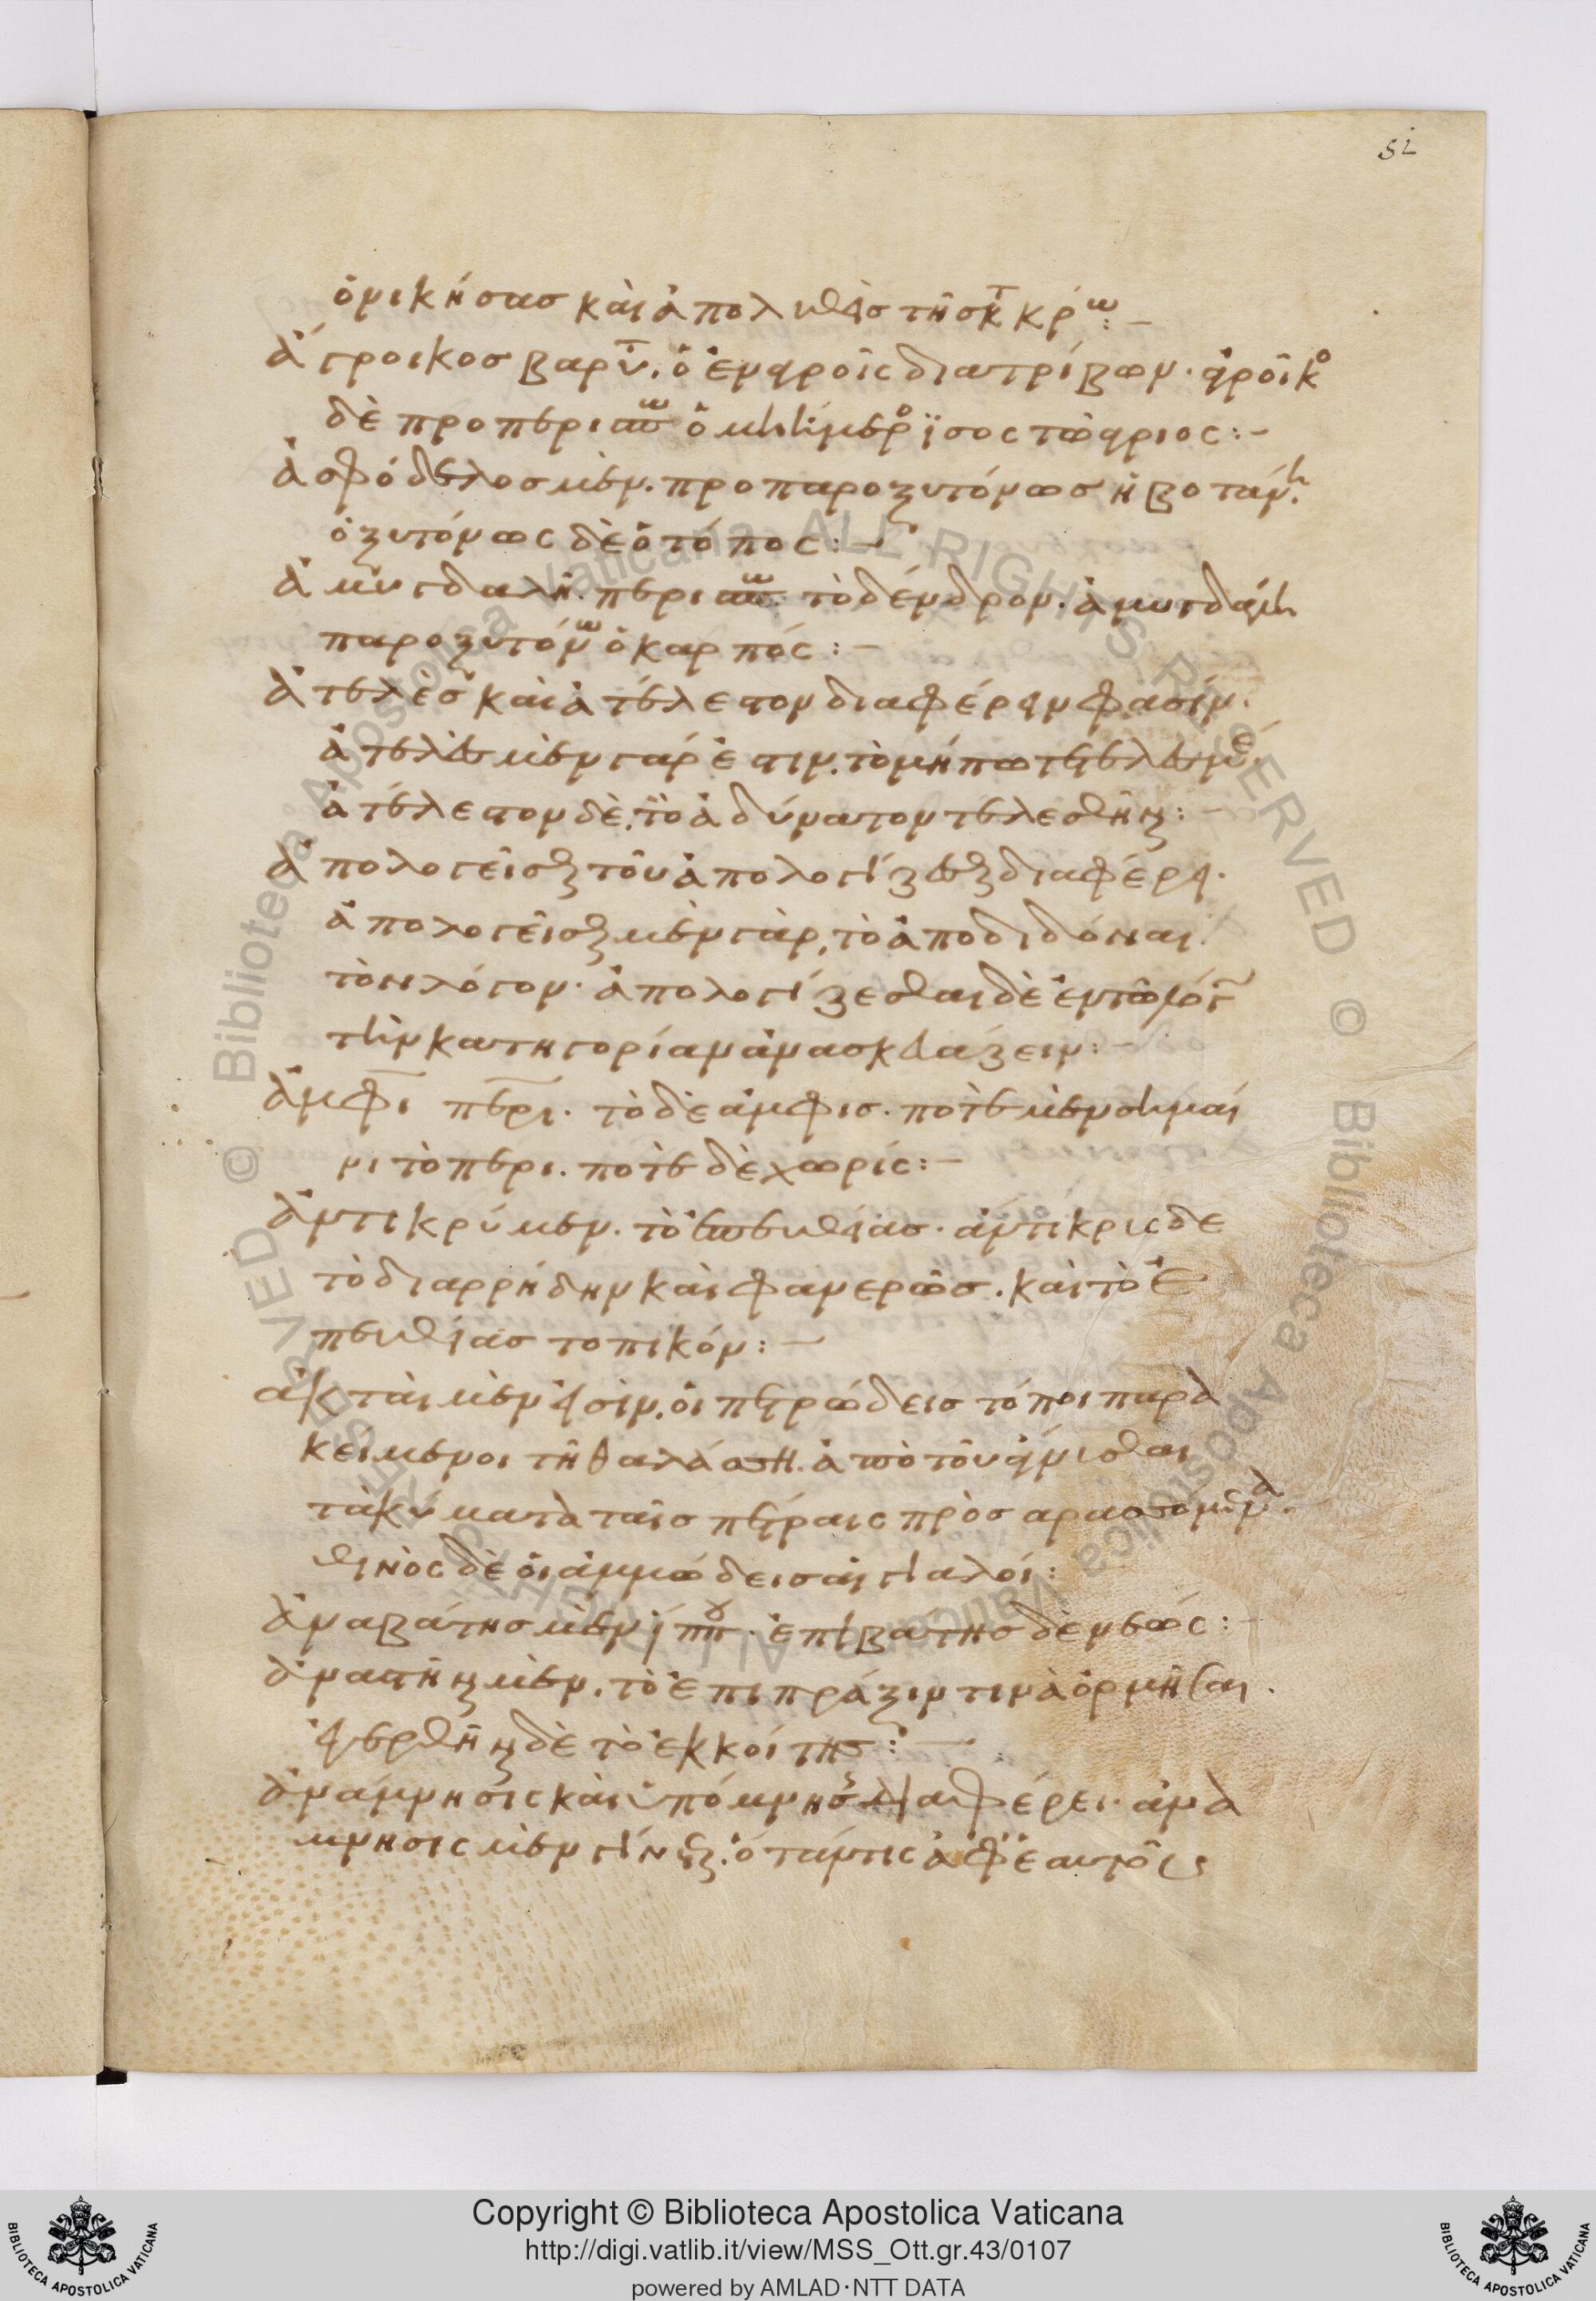 52
ὁ νικήσας καὶ ἀπολυθεὶς τῆς κτ κρω:-
ἄγροικος βαρυτ. ὁ ἐν ἀγροῖς διατρίβων. ἀγροῖκο
δὲ προπερισπω ὁ μὴ ἥμερο ἴσος τῶ ἄγριος:-
ἀσφόδελος μὲν. προπαροξυτόνως ἡ βοτάνη.
ὀξυτόνως δὲ ὁ τόπος:-
ἀμυγδαλῆ. περισπω. τὸ δένδρον. ἀμυγδάλη
παροξυτόνω ὁ καρπός:-
ἀτελὲς καὶ ἀτέλεστον διαφέρειν φασίν.
ἀτελὲς μὲν γάρ ἐστιν, τὸ μήπω τετελεσμέ
ἀτέλεστον δὲ, τὸ ἀδύνατον τελεσθῆναι:-
ἀπολογεῖσθαι τοῦ ἀπολογίζεσθαι διαφέρει.
ἀπολογεῖσθαι μὲν γὰρ, τὸ ἀποδιδόναι
τὸν λόγον. ἀπολογίζεσθαι δὲ ἐν τῶ λόγ
τὴν κατηγορίαν ἀνασκευάζειν:-
ἀμφι περι. τὸ δὲ ἀμφις. ποτὲ μὲν σημαί
νι τὸ περι. ποτὲ δὲ χωρίς:-
ἀντικρύ μεν. τὸ ἐπευθείας. ἄντικρις δε
τὸ διαρρήδην καὶ φανερῶς. καὶ τὸ ἐ
πευθείας τοπικόν:-
ἀκταὶ μὲν εἰσὶν, οἱ πετρώδεις τόποι παρα
κειμενοι τῆ θαλάσση. ἀπὸ τοῦ ἄγνισθαι
τὰ κύματα ταῖς πέτραις προσαρασσόμενα.
θινὸς δὲ οἱ ἀμμώδεις αἰγιαλοί:
ἀναβάτης μὲν ἵππου. ἐπιβάτης δὲ νεώς:-
ἀναστῆναι μὲν, τὸ ἐπι πράξιν τινὰ ὁρμῆσαι.
ἐγερθῆναι δὲ τὸ ἐκ κοίτης:-
ἀνάμνησις καὶ ὑπόμνησις διαφέρει. ἀνά
μνησις μὲν γίνεται, ὅταν τις ἀφ' ἑαυτοῦ
Copyright © Biblioteca Apostolica Vaticana
http://digi.vatlib.it/view/MSS_Ott.gr.43/0107
powered by AMLAD·NTT DATA